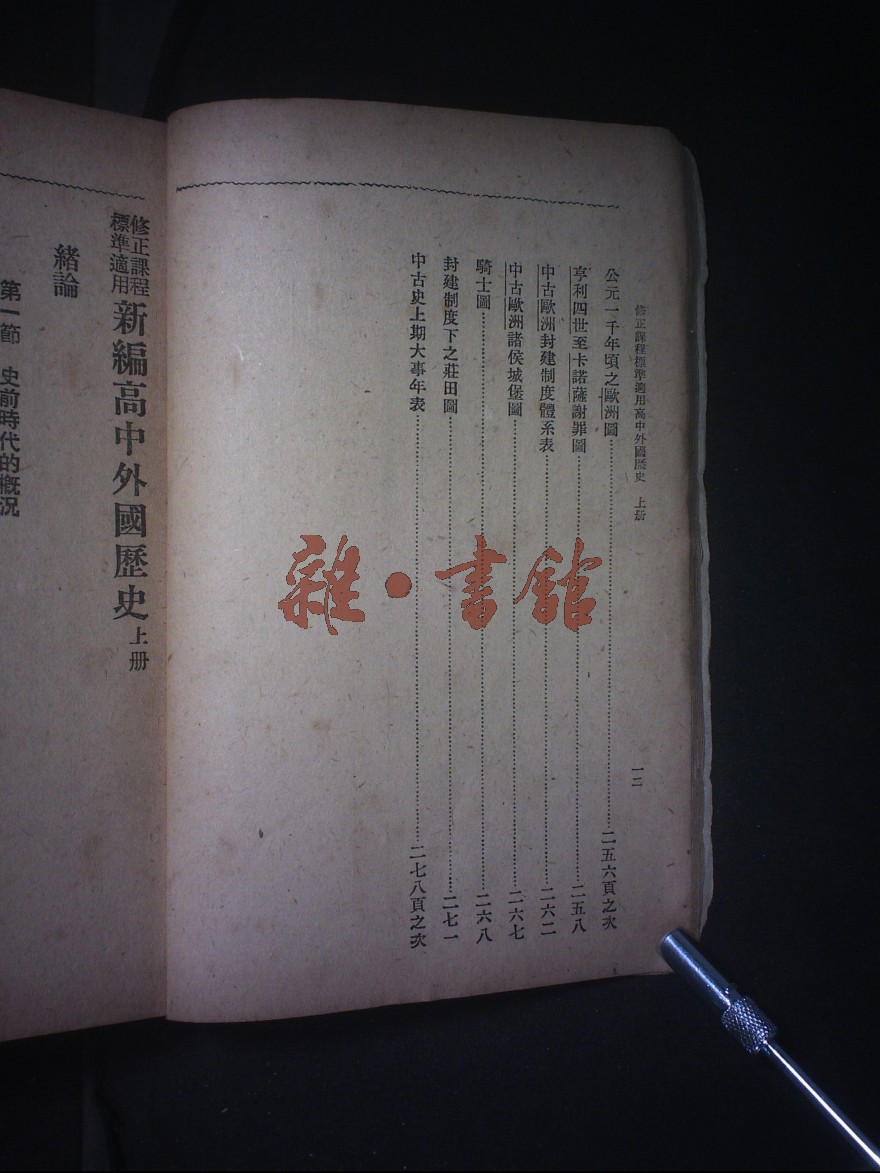 修正課程標準適用高中外國歷史 上册 一二
公元一千年頃之歐洲圖……二五六頁之次
亨利四世至卡諾薩謝罪圖……二五八
中古歐洲封建制度體系表……二六二
中古歐洲諸侯城堡圖……二六七
騎士圖……二六八
封建制度下之莊田圖……二七一
中古史上期大事年表……二七八頁之次
雜·書館
修正課程標準適用 新編高中外國歷史 上册
緒論
第一節 史前時代的概況